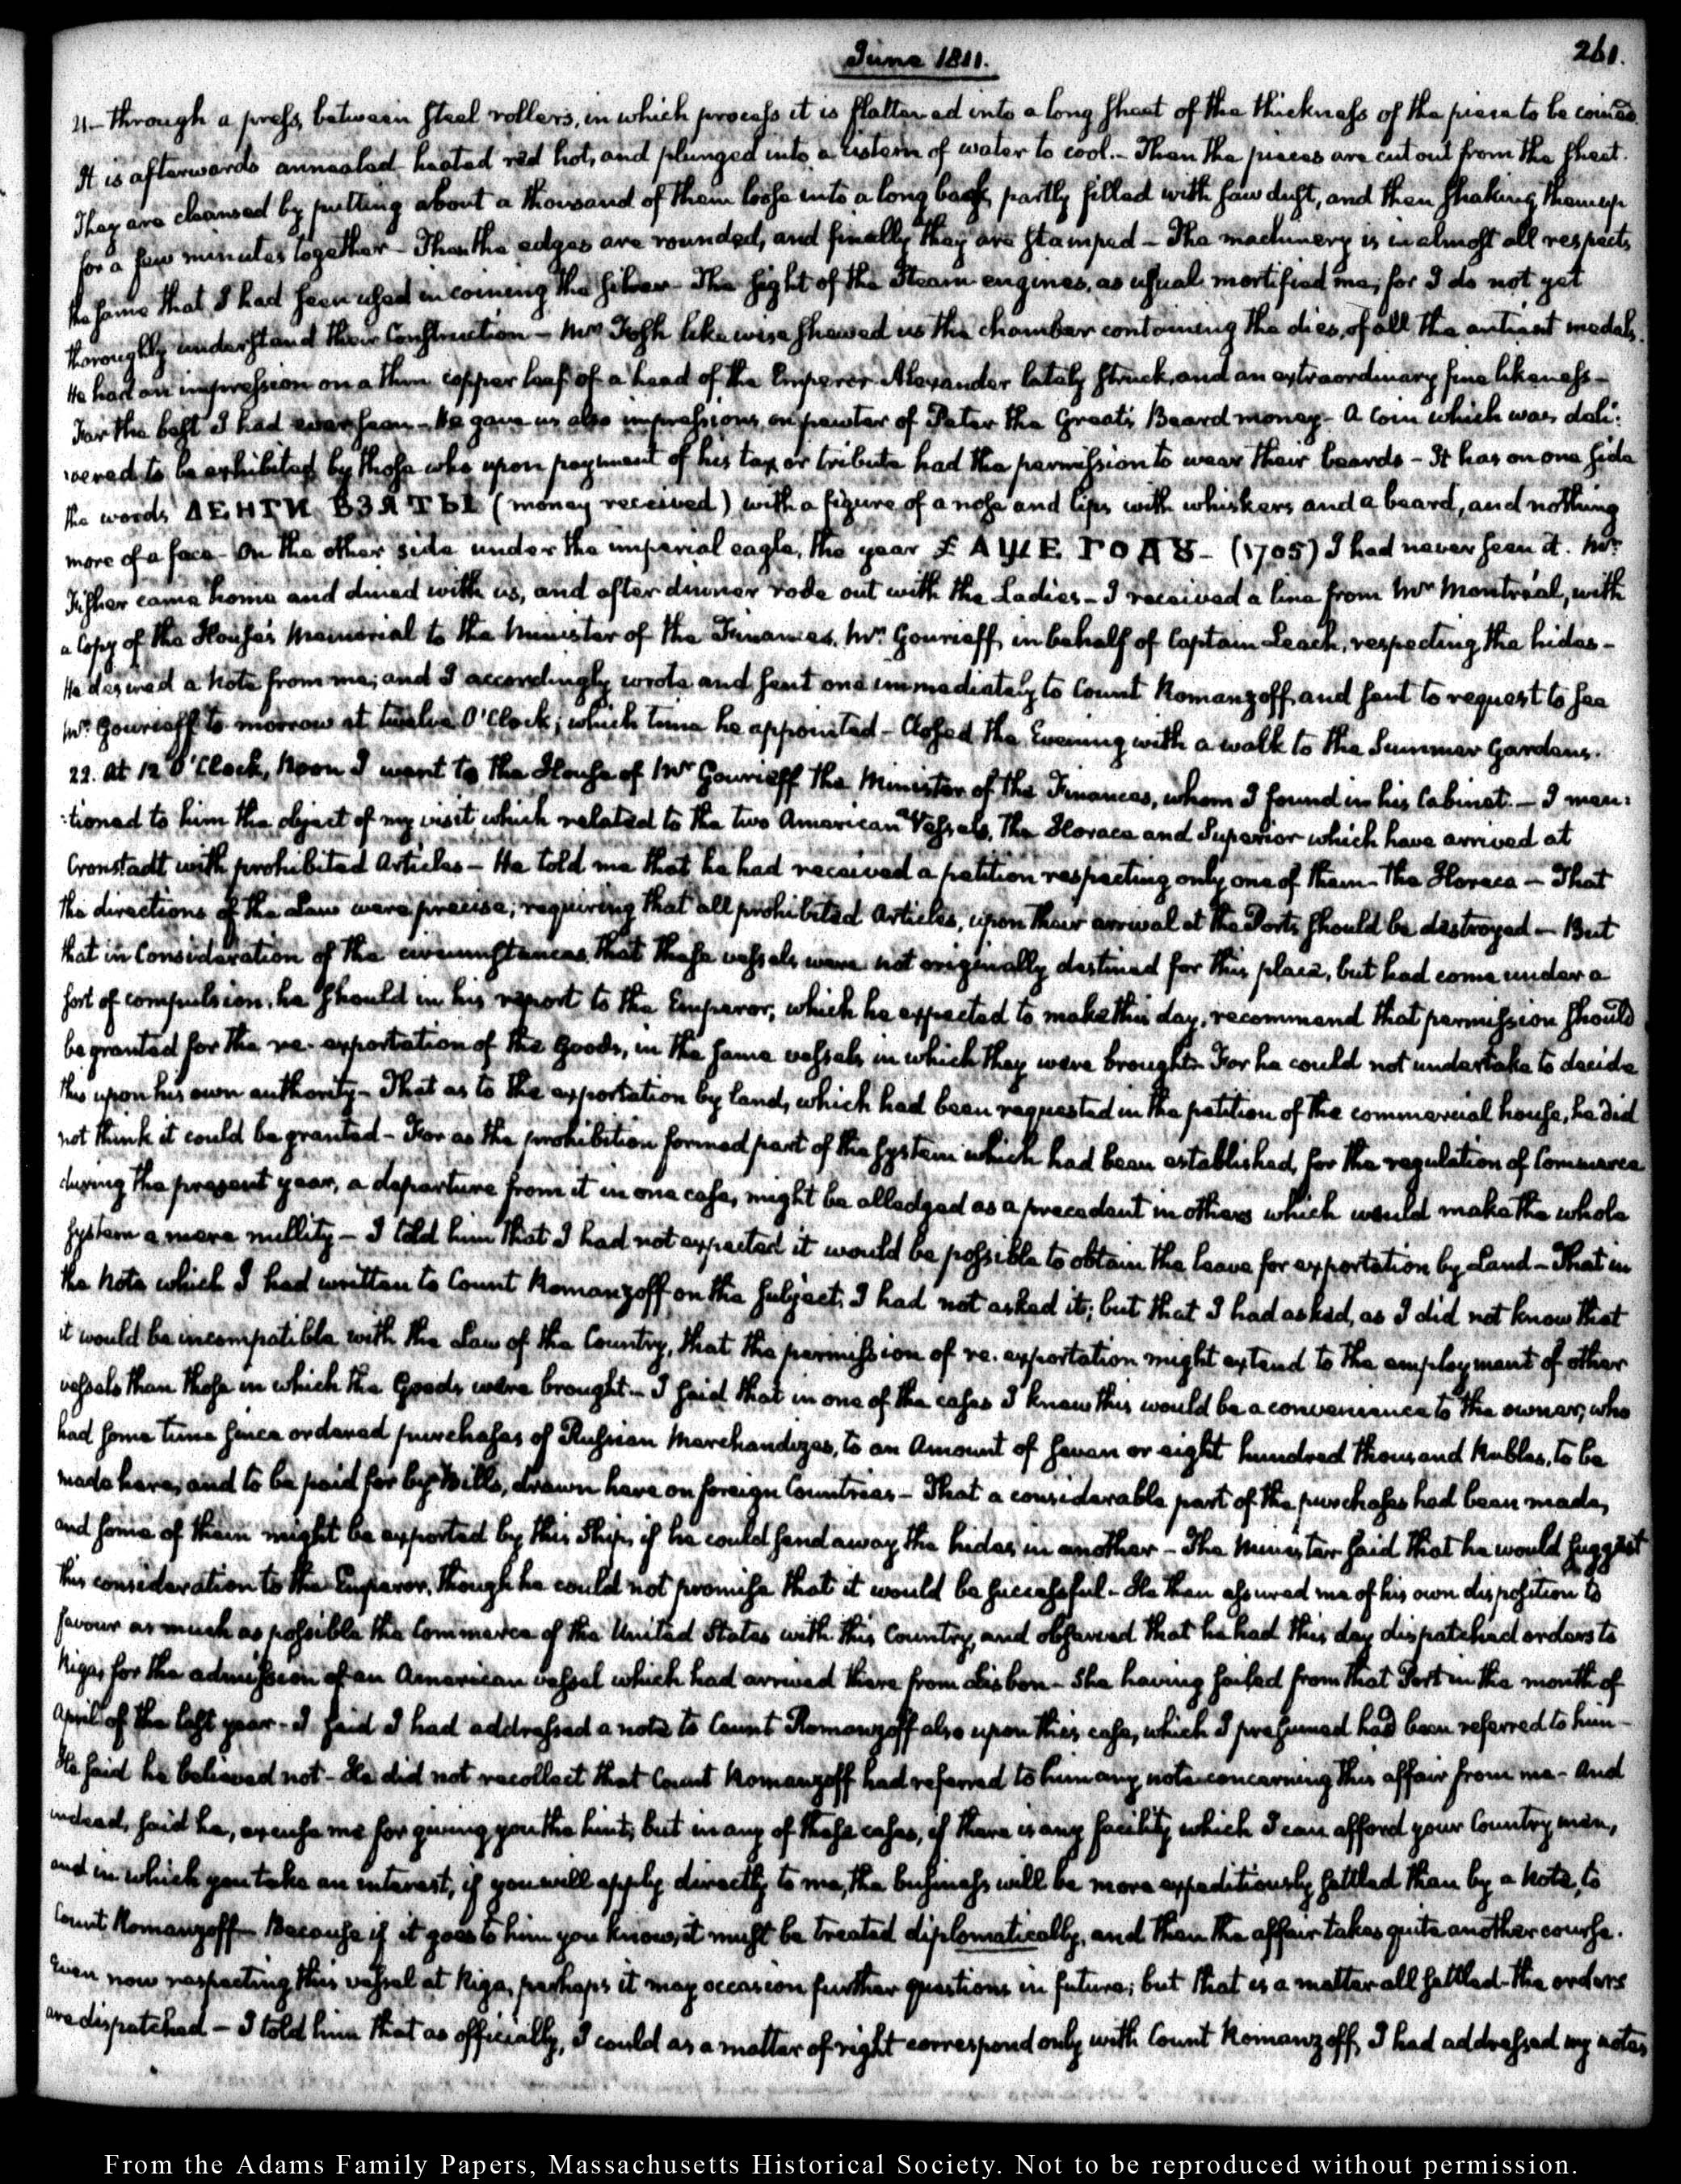 June 1811.
261.
21— through a press, between steel rollers, in which process it is flattened into a long sheet of the thickness of the piece to be coined.
It is afterwards annealed heated red hot, and plunged into a cistern of water to cool.— Then the pieces are cut out from the sheet.
They are cleansed by putting about a thousand of them loose into a long bag, partly filled with saw dust, and then shaking them up
for a few minutes together— Then the edges are rounded, and finally they are stamped— The machinery is in almost all respects
the same that I had seen used in coining the silver— The sight of the Steam engines, as usual mortified me; for I do not yet
thoroughly understand their Construction— Mr. Fosh likewise shewed us the chamber containing the dies, of all the antient medals.
He had an impression on a thin copper leaf of a head of the Emperor Alexander lately struck, and an extraordinary fine likeness—
Far the best I had ever seen— He gave us also impressions on pewter of Peter the Great's Beard money— A Coin which was deli:
:vered to be exhibited by those who upon payment of his tax or tribute had the permission to wear their beards— It has on one side
the words ДЕНГИ ВЗЯТЫ (money received) with a figure of a nose and lips with whiskers and a beard, and nothing
more of a face— On the other side under the imperial eagle, the year ҂АѰЕ ГОДꙊ— (1705) I had never seen it. Mr.
Fisher came home and dined with us, and after dinner rode out with the Ladies— I received a line from Mr Montréal, with
a Copy of the House's Memorial to the Minister of the Finances, Mr. Gourieff, in behalf of Captain Leach, respecting the hides—
He desired a Note from me; and I accordingly wrote and sent one immediately to Count Romanzoff, and sent to request to see
Mr. Gourieff to morrow at twelve O'Clock; which time he appointed— Closed the Evening with a walk to the Summer Gardens.
22. At 12 O'Clock, Noon I went to the House of Mr Gourieff the Minister of the Finances, whom I found in his Cabinet.— I men:
:tioned to him the object of my visit which related to the two American Vessels, the Horace and Superior which have arrived at
Cronstadt with prohibited Articles— He told me that he had received a petition respecting only one of them— the Horace— That
the directions of the Law were precise; requiring that all prohibited Articles, upon their arrival at the Ports should be destroyed— But
that in Consideration of the circumstances, that these vessels were not originally destined for this place, but had come under a
sort of compulsion, he should in his report to the Emperor, which he expected to make this day, recommend that permission should
be granted for the re-exportation of the Goods, in the same vessels in which they were brought— For he could not undertake to decide
this upon his own authority— That as to the exportation by land, which had been requested in the petition of the commercial house, he did
not think it could be granted— For as the prohibition formed part of the system which had been established, for the regulation of Commerce
during the present year, a departure from it in one case, might be alledged as a precedent in others which would make the whole
system a mere nullity— I told him that I had not expected it would be possible to obtain the leave for exportation by Land— That in
the Note which I had written to Count Romanzoff on the subject, I had not asked it; but that I had asked, as I did not know that
it would be incompatible with the Law of the Country, that the permission of re-exportation might extend to the employment of other
vessels than those in which the Goods were brought.— I said that in one of the cases I knew this would be a convenience to the owner; who
had some time since ordered purchases of Russian Merchandizes, to an Amount of seven or eight hundred thousand Rubles, to be
made here, and to be paid for by Bills, drawn here on foreign Countries— That a considerable part of the purchases had been made,
and some of them might be exported by this Ship, if he could send away the hides in another— The Minister said that he would suggest
this consideration to the Emperor, though he could not promise that it would be successful— He then assured me of his own disposition to
favour as much as possible the Commerce of the United States with this Country, and observed that he had this day dispatched orders to
Riga, for the admission of an American vessel which had arrived there from Lisbon— She having sailed from that Port in the month of
April of the last year— I said I had addressed a note to Count Romanzoff also upon this case, which I presumed had been referred to him—
He said he believed not— He did not recollect that Count Romanzoff had referred to him any note concerning this affair from me— And
indeed, said he, excuse me for giving you the hint; but in any of these cases, if there is any facility which I can afford your Countrymen,
and in which you take an interest, if you will apply directly to me, the business will be more expeditiously settled than by a Note, to
Count Romanzoff— Because if it goes to him you know, it must be treated diplomatically, and then the affair takes quite another course.
Even now respecting this vessel at Riga, perhaps it may occasion further questions in future; but that is a matter all settled— the orders
are dispatched— I told him that as officially, I could as a matter of right correspond only with Count Romanzoff, I had addressed my notes
From the Adams Family Papers, Massachusetts Historical Society. Not to be reproduced without permission.